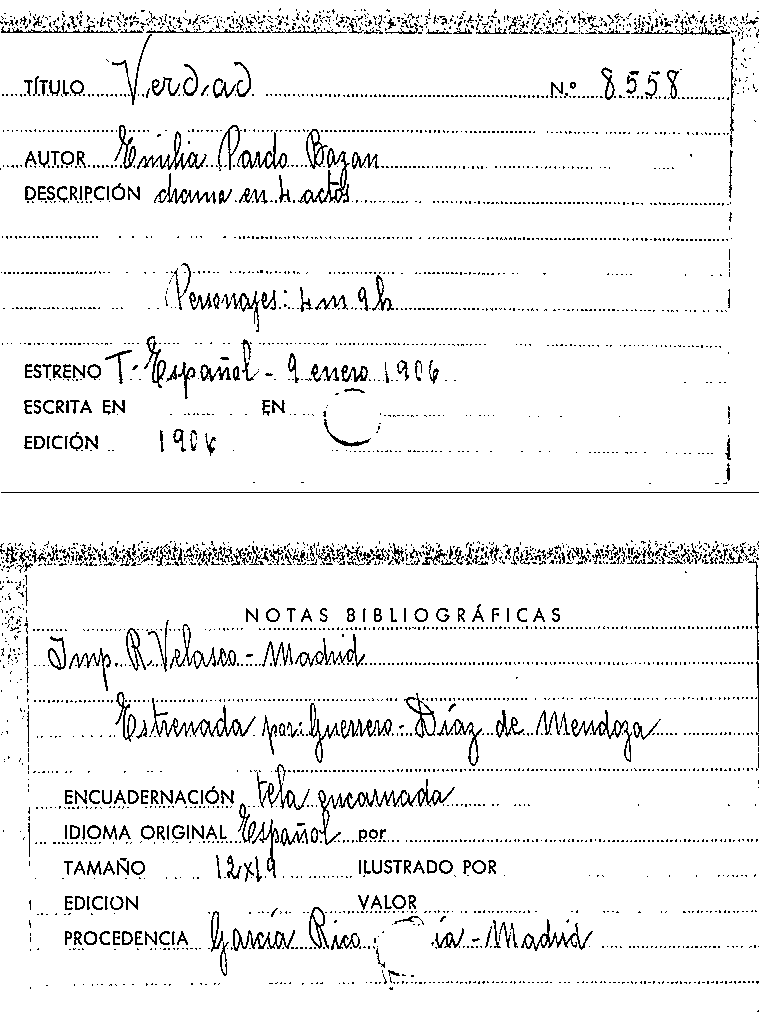 TÍTULO Verdad N.º 8558
AUTOR Emilia Pardo Bazan
DESCRIPCIÓN drama en 4 actos
Personajes: 4 m 9 h
ESTRENO T. Español - 9 enero 1906
ESCRITA EN EN
EDICIÓN 1906
NOTAS BIBLIOGRÁFICAS
Imp. R. Velasco - Madrid
Estrenada por: Guerrero - Díaz de Mendoza
ENCUADERNACIÓN tela encarnada
IDIOMA ORIGINAL Español por
TAMAÑO 12x19 ILUSTRADO POR
EDICION VALOR
PROCEDENCIA García Rico ía - Madrid